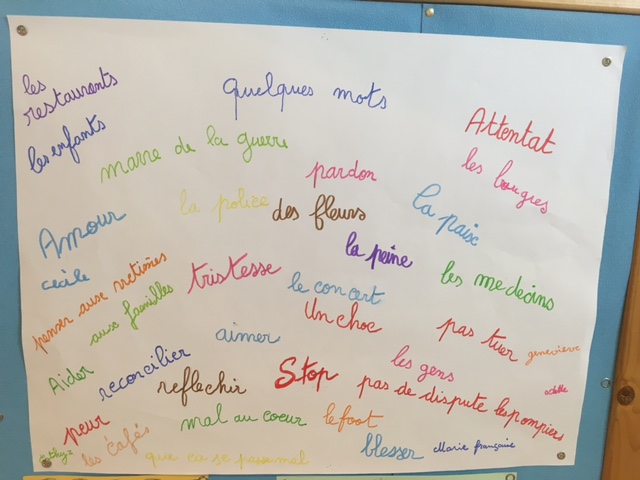 quelques mots
les
restaurants
les enfants
Attentat
marre de la guerre
pardon
les bougres
la police
des fleurs
la paix
Amour
la peine
cécile
penser aux victimes
tristesse
le concert
les medecins
aux familles
Un choc
pas tuer
aimer
genevieve
les gens
Aider
reconcilier
reflechir
Stop
pas de dispute
les pompiers
peur
mal au coeur
le foot
les cafés
que ça se passe mal
blesser
Marie françoise